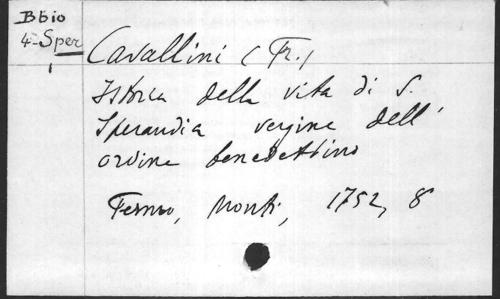 Bbio
4-Sper
1
Cavallini (Fr.)
Istoria della vita di S.
Sperandia vergine dell'
ordine benedettino
Fermo, Monti, 1752, 8